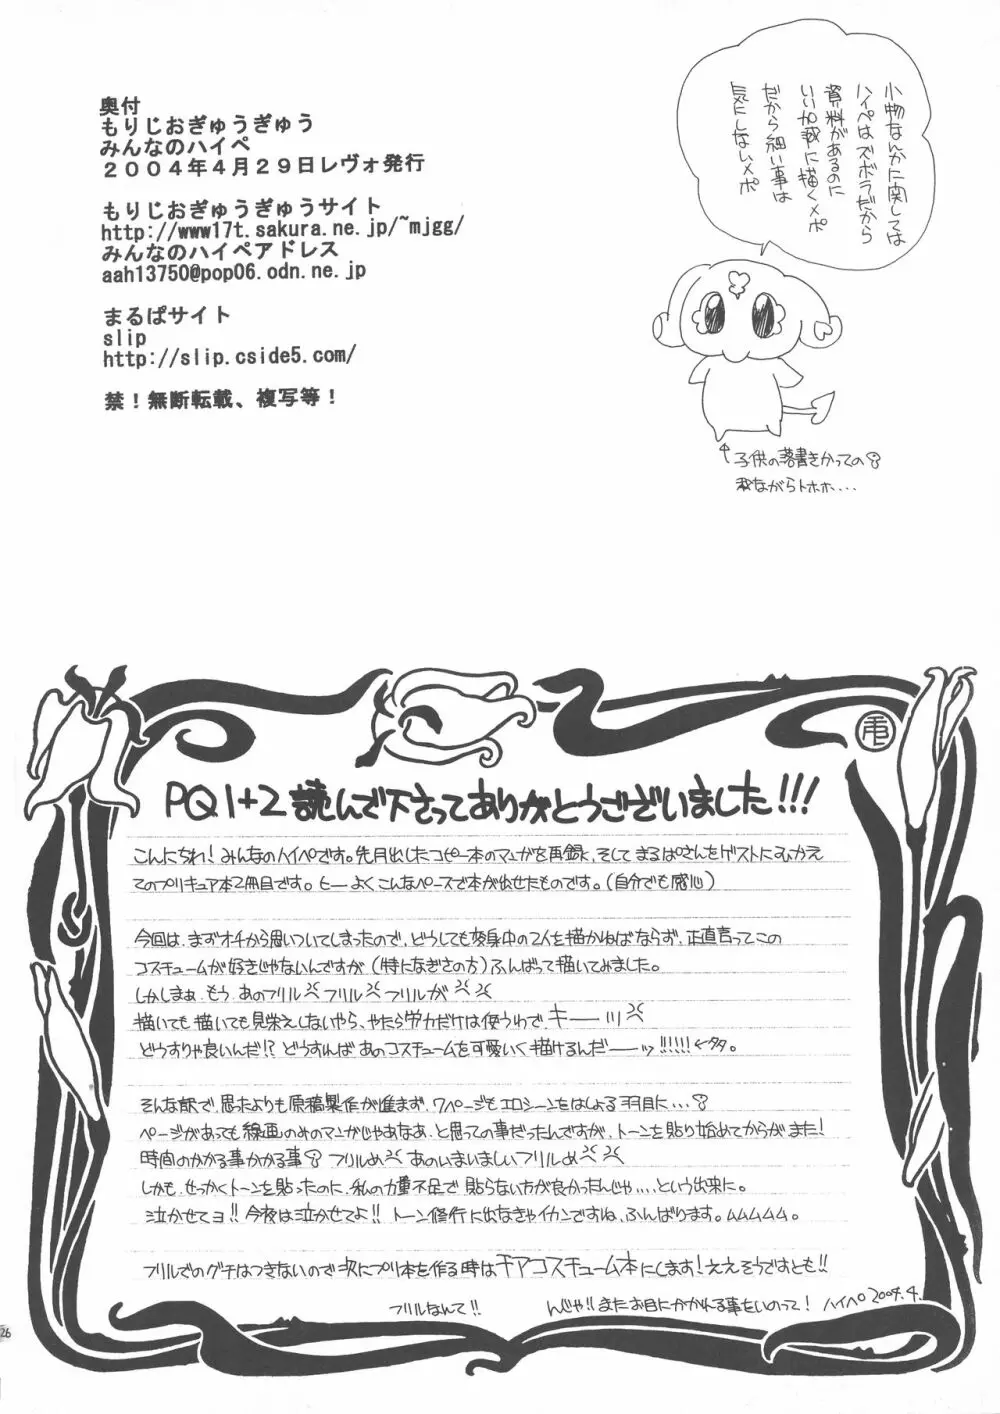 奥付
もりじおぎゅうぎゅう
みんなのハイペ
２００４年４月２９日レヴォ発行
もりじおぎゅうぎゅうサイト
http://www17t.sakura.ne.jp/~mjgg/
みんなのハイペアドレス
aah13750@pop06.odn.ne.jp
まるぱサイト
slip
http://slip.cside5.com/
禁！無断転載、複写等！
小物なんかに関しては
ハイペはズボラだから
資料があるのに
いい加減に描くメポ
だから細い事は
気にしないメポ
↑子供の落書きかっての
我ながらトホホ....
PQ1+2 読んで下さってありがとうございました!!!
こんにちわ！みんなのハイペです。先月出したコピー本のマンガを再録、そして まるぱさんをゲストにむかえ
てのプリキュア本2冊目です。ヒーよくこんなペースで本が出せたものです。（自分でも感心）
今回は、まずオチから思いついてしまったので、どうしても変身中の2人を描かねばならず、正直言ってこの
コスチュームが好きじゃないんですが（特になぎさの方）ふんばって描いてみました。
しかしまぁ、もう、あのフリル フリル フリルが
描いても描いても見栄えしないやら、やたら労力だけは使うわで キーーッ
どうすりゃ良いんだ!? どうすれば あのコスチュームを可愛いく描けるんだーーッ!!!!!!
そんな訳で、思たよりも原稿製作が進まず、7ページもエロシーンをはしょる羽目に...
ページがあっても線画のみのマンガじゃあなあ、と思っての事だったんですが、トーンを貼り始めてからがまた！
時間のかかる事かかる事 フリルめ あのいまいましいフリルめ
しかも、せっかくトーンを貼ったのに、私の力量不足で貼らない方が良かったんじゃ....という出来に。
泣かせてョ!! 今夜は泣かせてよ!! トーン修行に出なきゃイカンですね、ふんばります。ムムムムム。
フリルでのグチはつきないので次にプリ本を作る時はチアコスチューム本にします！ええそうですとも!!
フリルなんて!! んじゃ!! またお目にかかれる事をいのって！ ハイペ 2004.4.
26